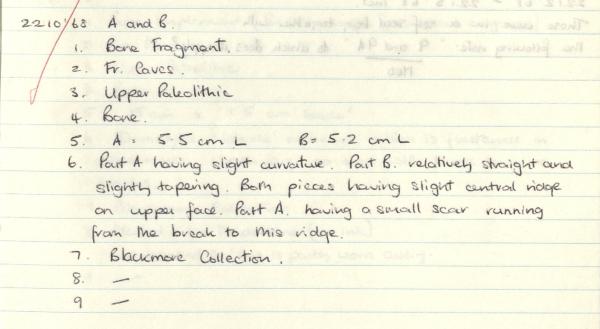 22.10'68 A and B.
1. Bone Fragment.
2. Fr. Caves.
3. Upper Paleolithic
4. Bone.
5. A = 5.5 cm L B = 5.2 cm L
6. Part A having slight curvature. Part B. relatively straight and
slightly tapering. Both pieces having slight central ridge
on upper face. Part A. having a small scar running
from the break to this ridge.
7. Blackmore Collection.
8. —
9 —